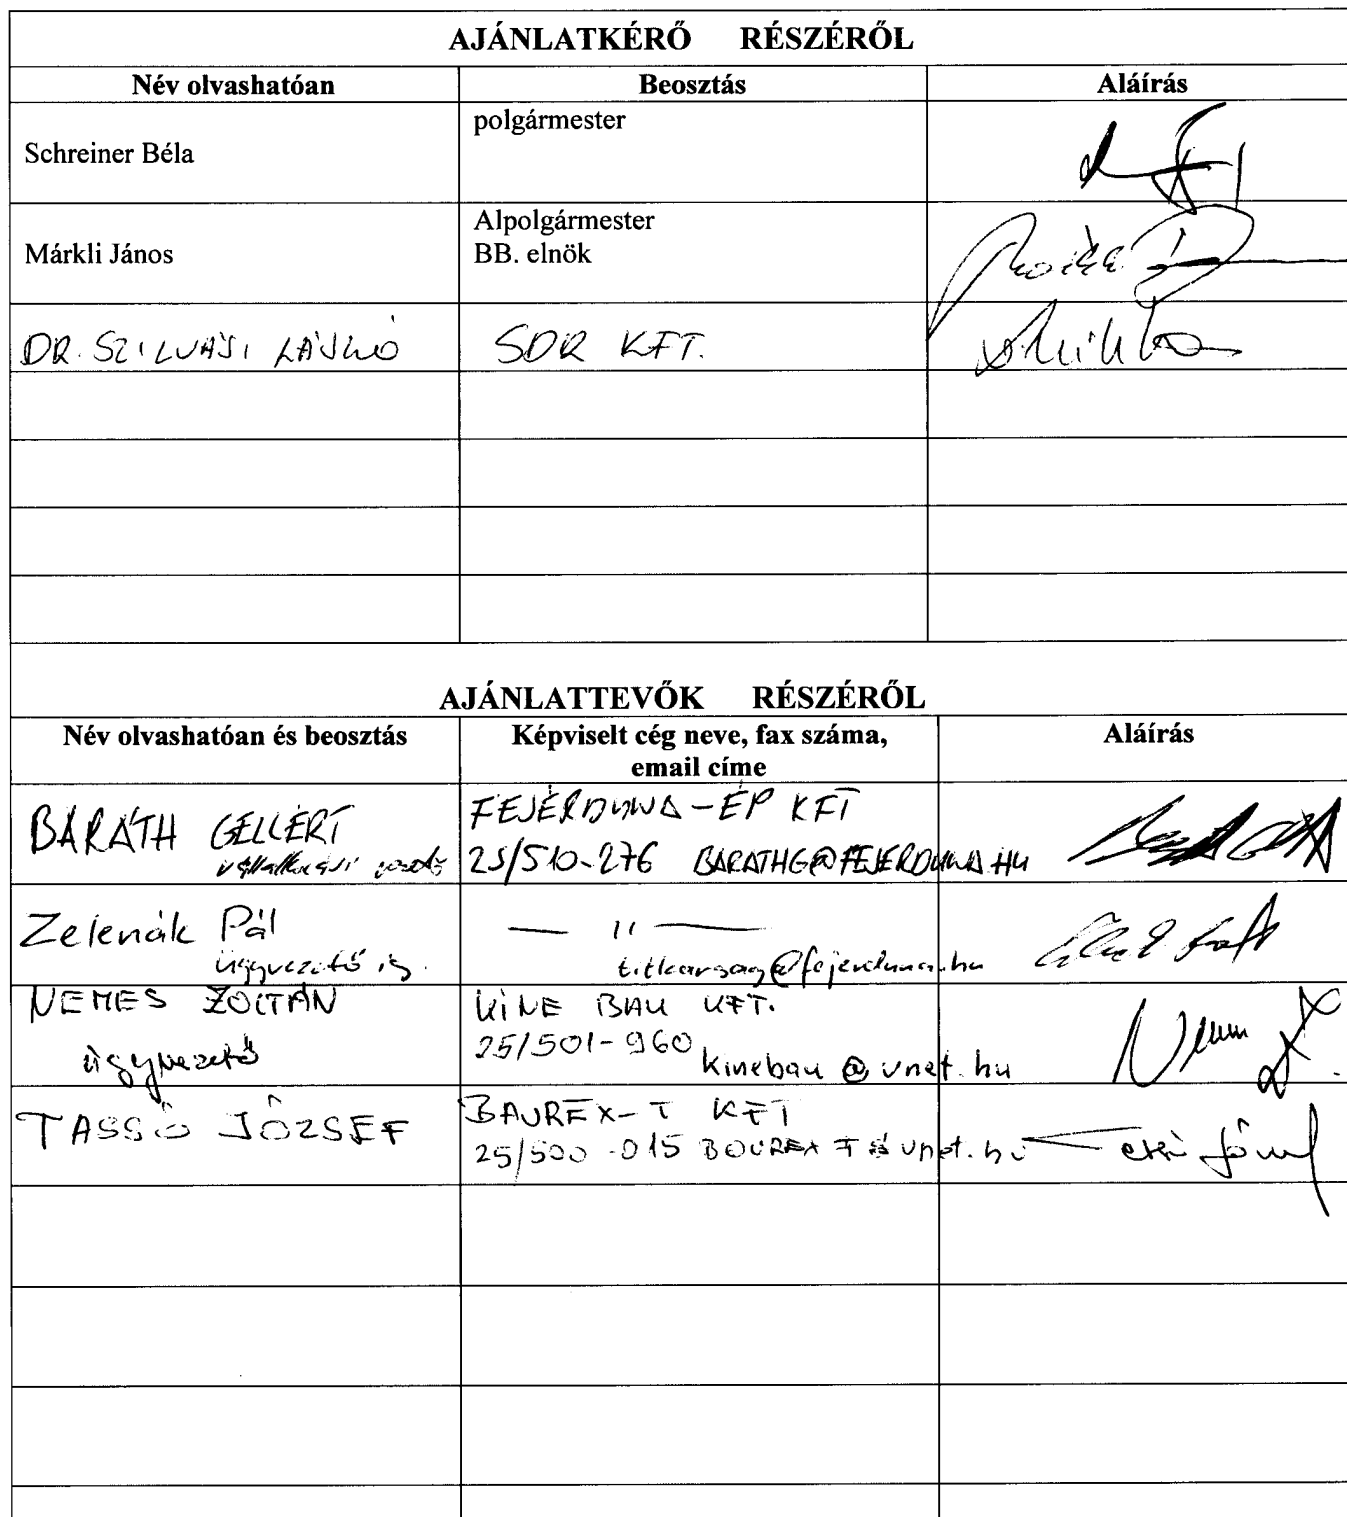 AJÁNLATKÉRŐ RÉSZÉRŐL
Név olvashatóan Beosztás Aláírás
Schreiner Béla polgármester
Márkli János Alpolgármester
BB. elnök
DR. SZILVÁSI LÁSZLÓ SDR KFT.
AJÁNLATTEVŐK RÉSZÉRŐL
Név olvashatóan és beosztás Képviselt cég neve, fax száma, Aláírás
email címe
BARÁTH GELLÉRT FEJÉRDUNA-ÉP KFT
25/510-276 BARATHG@FEJERDUNA.HU
Zelenák Pál — 11 —
ügyvezető ig. titkarsag@fejerduna.hu
NEMES ZOLTÁN KINE BAU KFT.
25/501-960
ügyvezető kinebau@vnet.hu
TASSÓ JÓZSEF BAUREX-T KFT
25/500-015